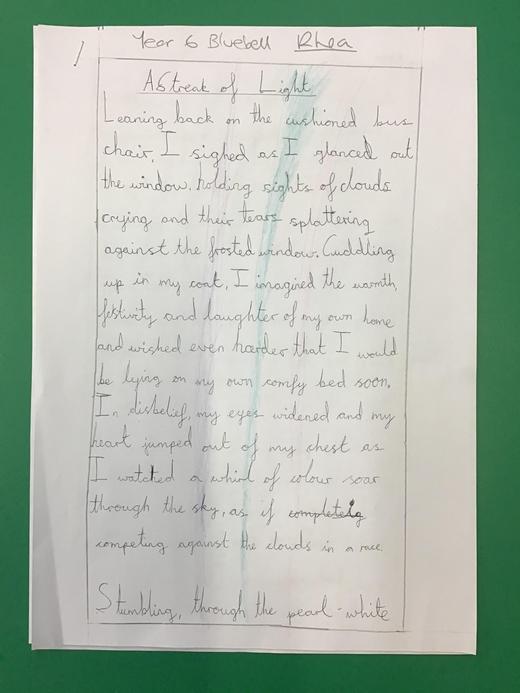 Year 6 Bluebell Rhea
1
A Streak of Light
Leaning back on the cushioned bus
chair, I sighed as I glanced out
the window, holding sights of clouds
crying and their tears splattering
against the frosted window. Cuddling
up in my coat, I imagined the warmth,
festivity and laughter of my own home
and wished even harder that I would
be lying on my own comfy bed soon.
In disbelief, my eyes widened and my
heart jumped out of my chest as
I watched a whirl of colour soar
through the sky, as if completeig
competing against the clouds in a race.
Stumbling, through the pearl-white